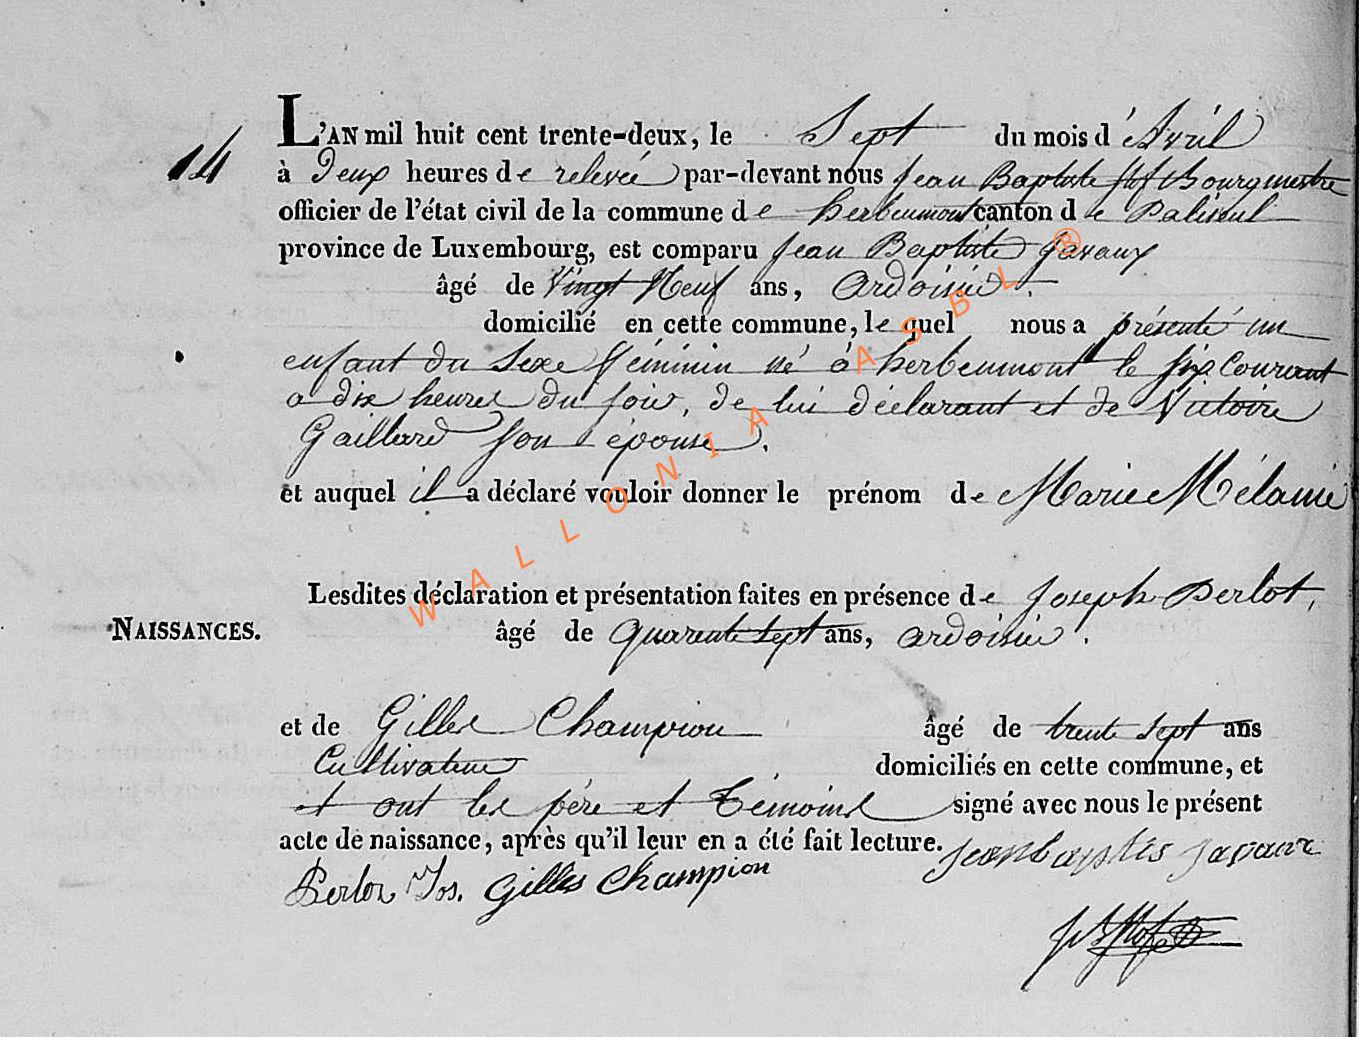 14
L'AN mil huit cent trente-deux, le Sept du mois d'Avril
à Deux heures de relevée par-devant nous Jean Baptiste Bourgmestre
officier de l'état civil de la commune de herbeumont canton de Paliseul
province de Luxembourg, est comparu Jean Baptiste Javaux
âgé de Vingt Neuf ans, Ardoisier.
domicilié en cette commune, lequel nous a présenté un
enfant du Sexe féminin né à herbeumont le six Courant
a dix heures du soir, de lui déclarant et de Victoire
Gaillard son épouse.
et auquel il a déclaré vouloir donner le prénom de Marie Mélanie
Lesdites déclaration et présentation faites en présence de Joseph Perlot,
NAISSANCES.
âgé de quarente sept ans, ardoisier.
et de Gilles Champion âgé de trente sept ans
Cultivateur domiciliés en cette commune, et
et ont les père et Témoins signé avec nous le présent
acte de naissance, après qu'il leur en a été fait lecture. jean baptis javaux
Perlot Jos. Gilles Champion
WALLONIA ASBL ®